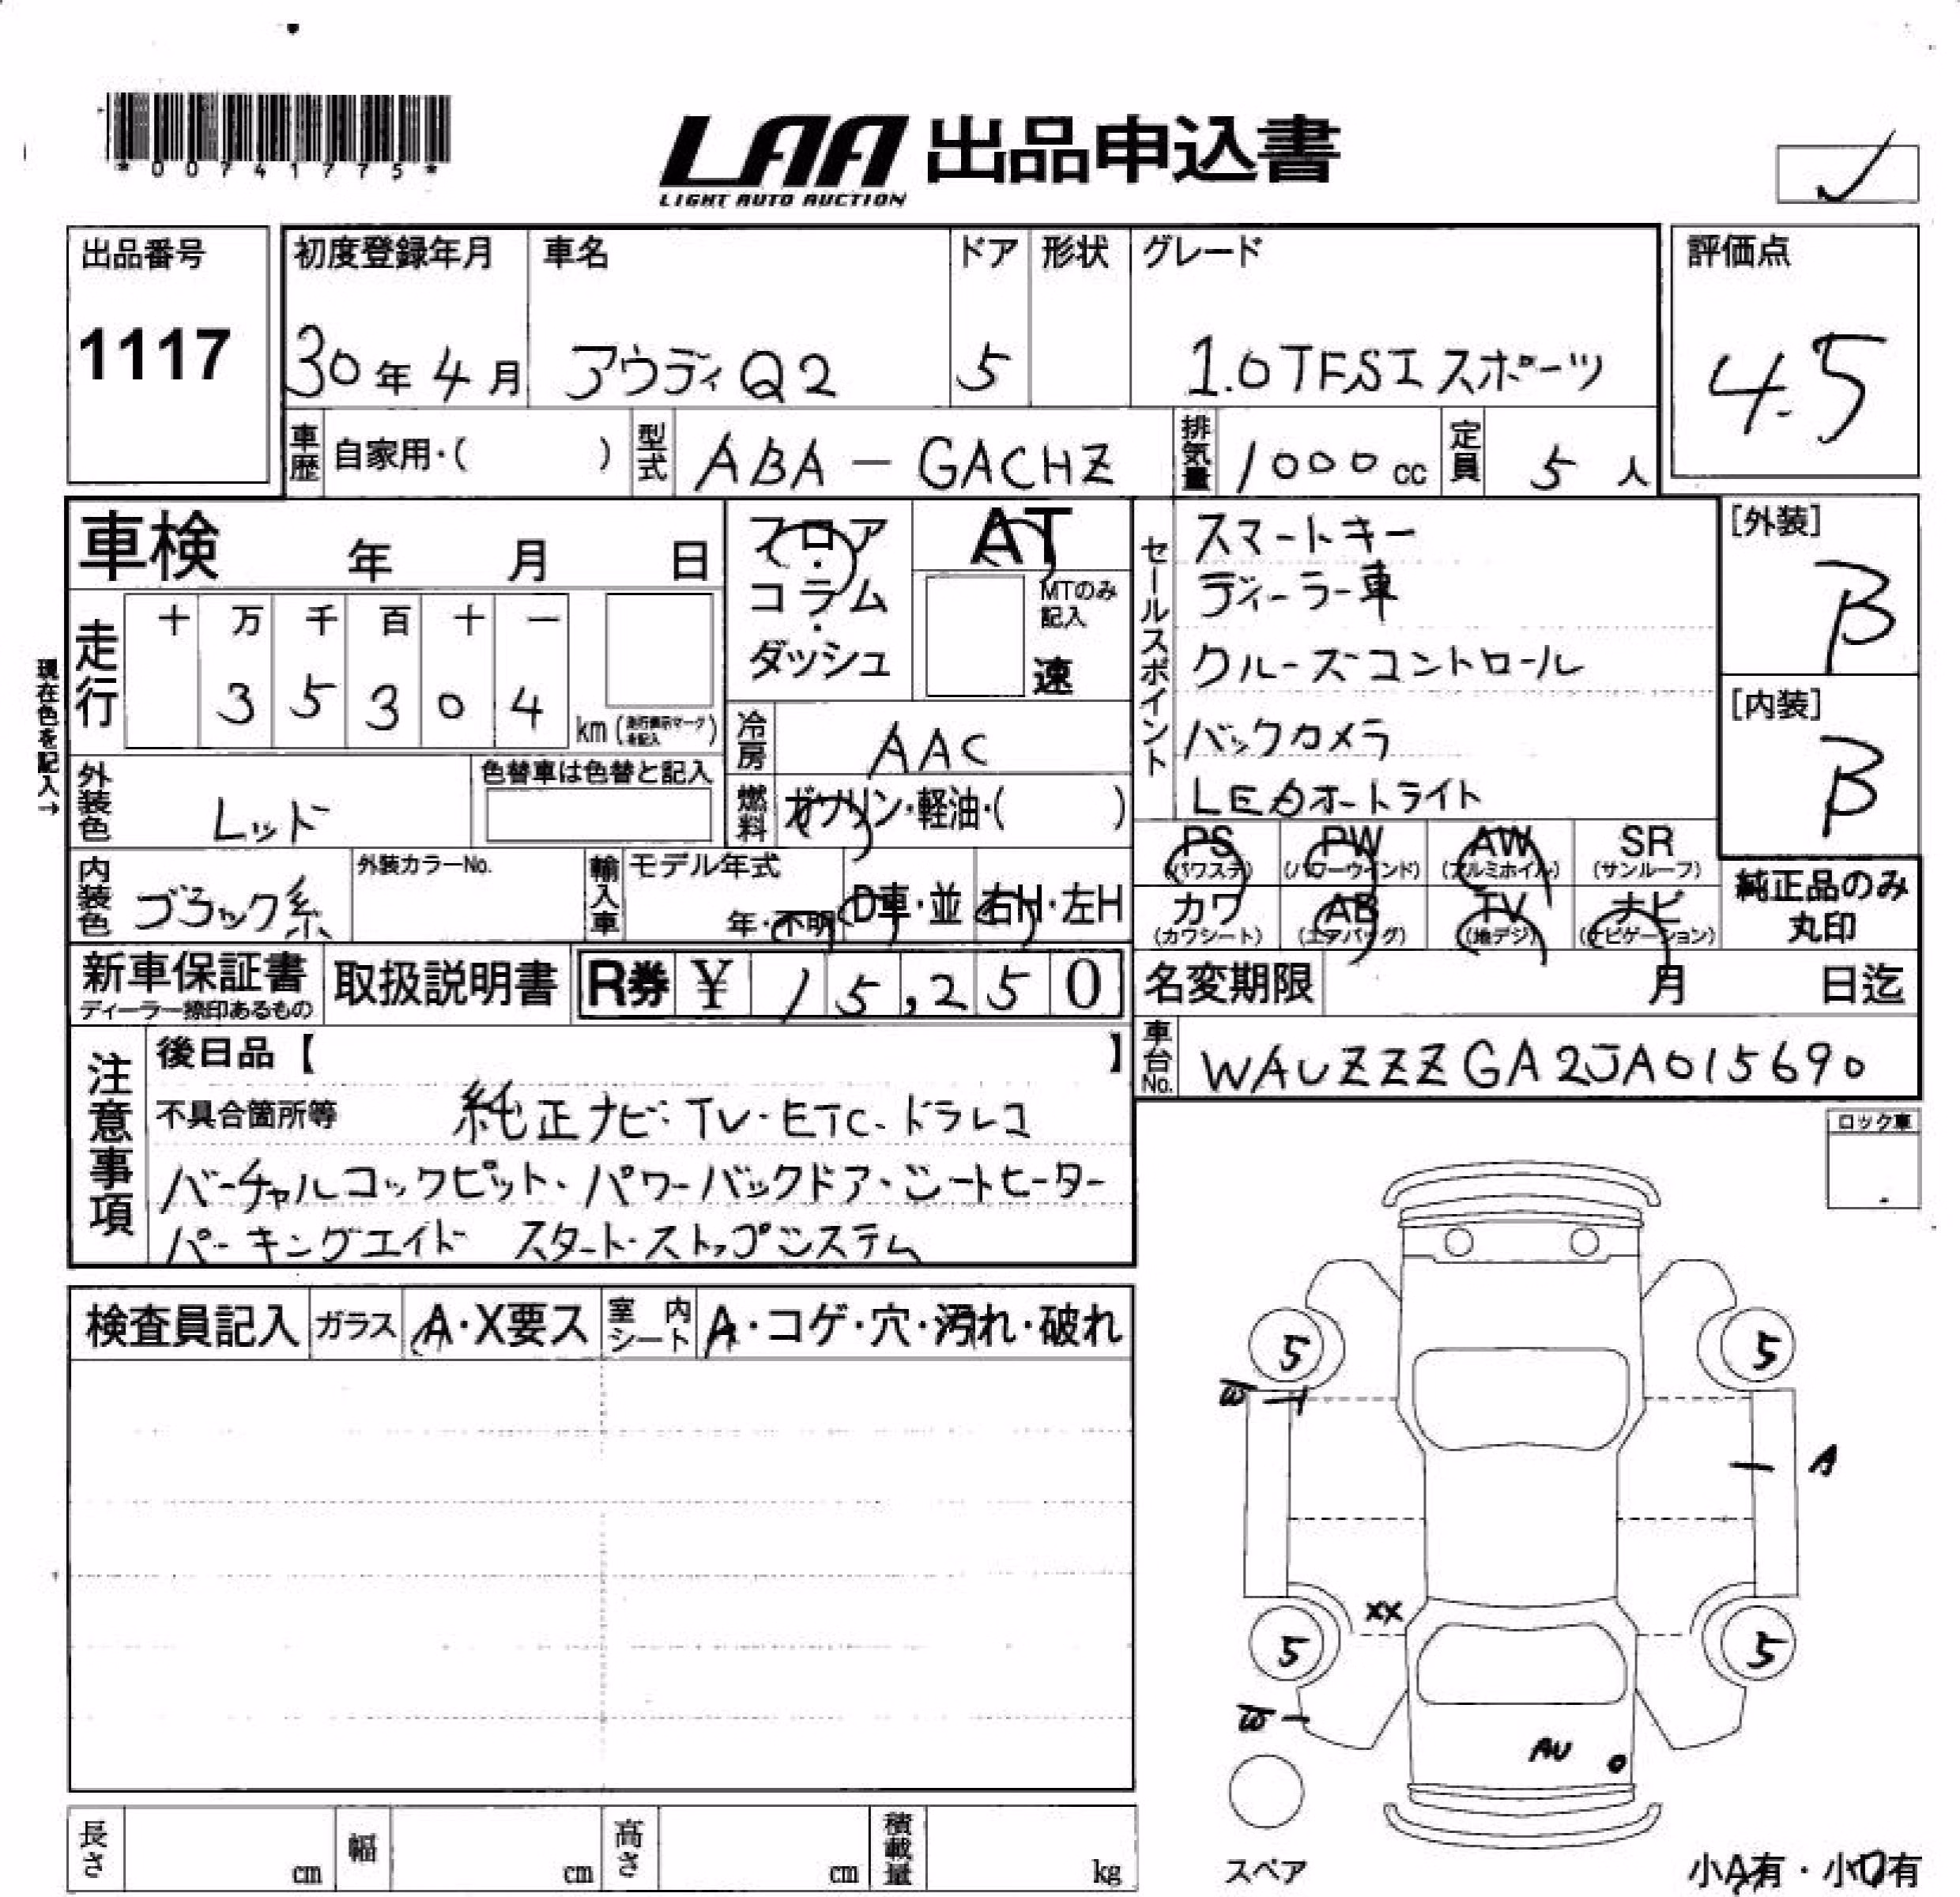 *00741775*
LAA 出品申込書
LIGHT AUTO AUCTION
出品番号
1117
初度登録年月 車名 ドア 形状 グレード
30年 4月 アウディQ2 5 1.0TFSIスポーツ
評価点
4.5
車歴 自家用・( ) 型式 ABA-GACHZ 排気量 1000cc 定員 5人
車検 年 月 日
走行 十 万 千 百 十 一
3 5 3 0 4 km (走行表示マークを記入)
現在色を記入→
フロア・
コラム・
ダッシュ
AT
MTのみ記入
速
冷房 AAC
燃料 ガソリン・軽油・( )
セールスポイント
スマートキー
ディーラー車
クルーズコントロール
バックカメラ
LEDオートライト
[外装]
B
[内装]
B
外装色 レッド
色替車は色替と記入
内装色 ブラック系
外装カラーNo.
輸入車 モデル年式
年・不明 D車・並 右H・左H
PS (パワステ) PW (パワーウインド) AW (アルミホイル) SR (サンルーフ)
カワ (カワシート) AB (エアバッグ) TV (地デジ) ナビ (ナビゲーション)
純正品のみ
丸印
新車保証書
ディーラー捺印あるもの
取扱説明書 R券 ¥ 15,250
名変期限 月 日迄
車台No. WAUZZZGA2JA015690
注意事項
後日品【 】
不具合箇所等 純正ナビ・TV・ETC・ドラレコ
バーチャルコックピット・パワーバックドア・シートヒーター
パーキングエイド スタート・ストップシステム
ロック車
検査員記入 ガラス A・X要ス 室内シート A・コゲ・穴・汚れ・破れ
5 5
W
A
XX
5 5
W
AU
スペア
小A有・小U有
長さ cm 幅 cm 高さ cm 積載量 kg